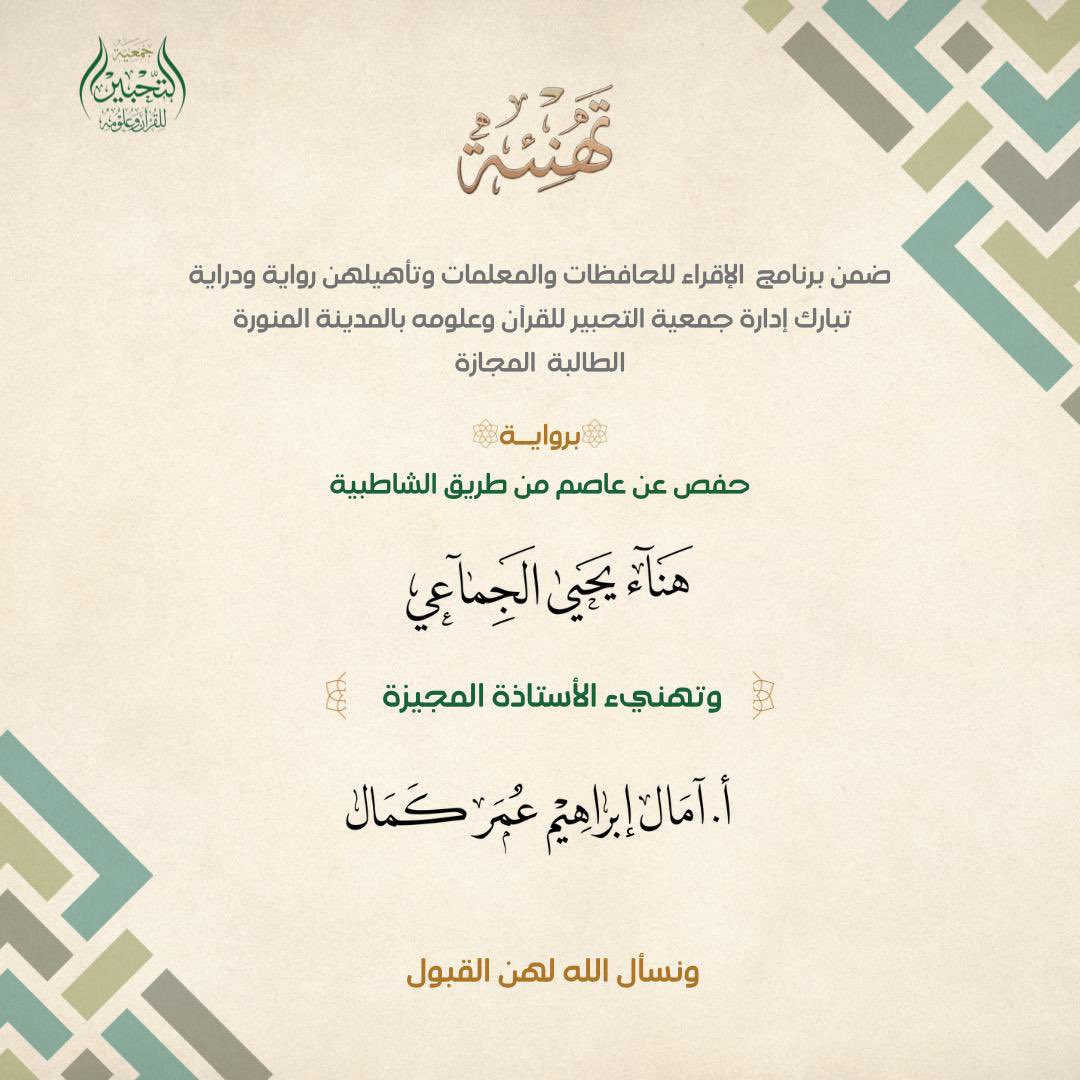 جمعية
التحبير
للقرآن وعلومه
تهنئة
ضمن برنامج الإقراء للحافظات والمعلمات وتأهيلهن رواية ودراية
تبارك إدارة جمعية التحبير للقرآن وعلومه بالمدينة المنورة
الطالبة المجازة
بروايـــة
حفص عن عاصم من طريق الشاطبية
هناء يحيى الجماعي
وتهنيء الأستاذة المجيزة
أ. آمال إبراهيم عمر كمال
ونسأل الله لهن القبول